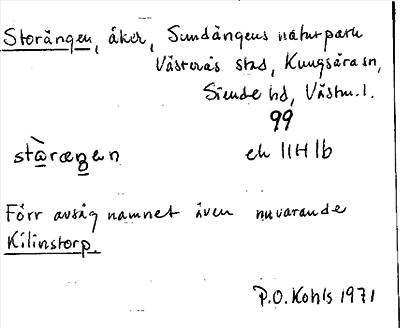 Storängen, åker, Sundängens naturpark
Västerås stad, Kungsåra sn,
Siende hd, Västm. l.
99
stàræŋen ek 11H1b
Förr avsåg namnet även nuvarande
Kilinstorp.
P.O. Kohls 1971